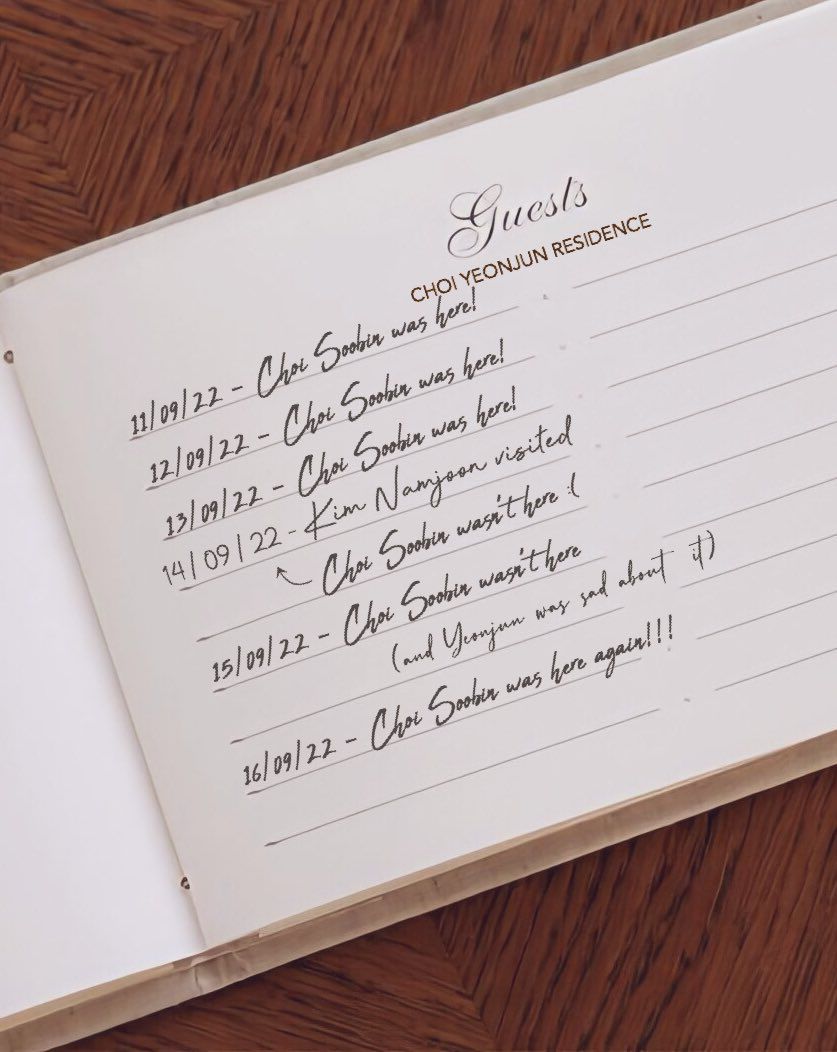 Guests
CHOI YEONJUN RESIDENCE
11/09/22 - Choi Soobin was here!
12/09/22 - Choi Soobin was here!
13/09/22 - Choi Soobin was here!
14/09/22 - Kim Namjoon visited
Choi Soobin wasn't here :(
15/09/22 - Choi Soobin wasn't here
(and Yeonjun was sad about it)
16/09/22 - Choi Soobin was here again!!!